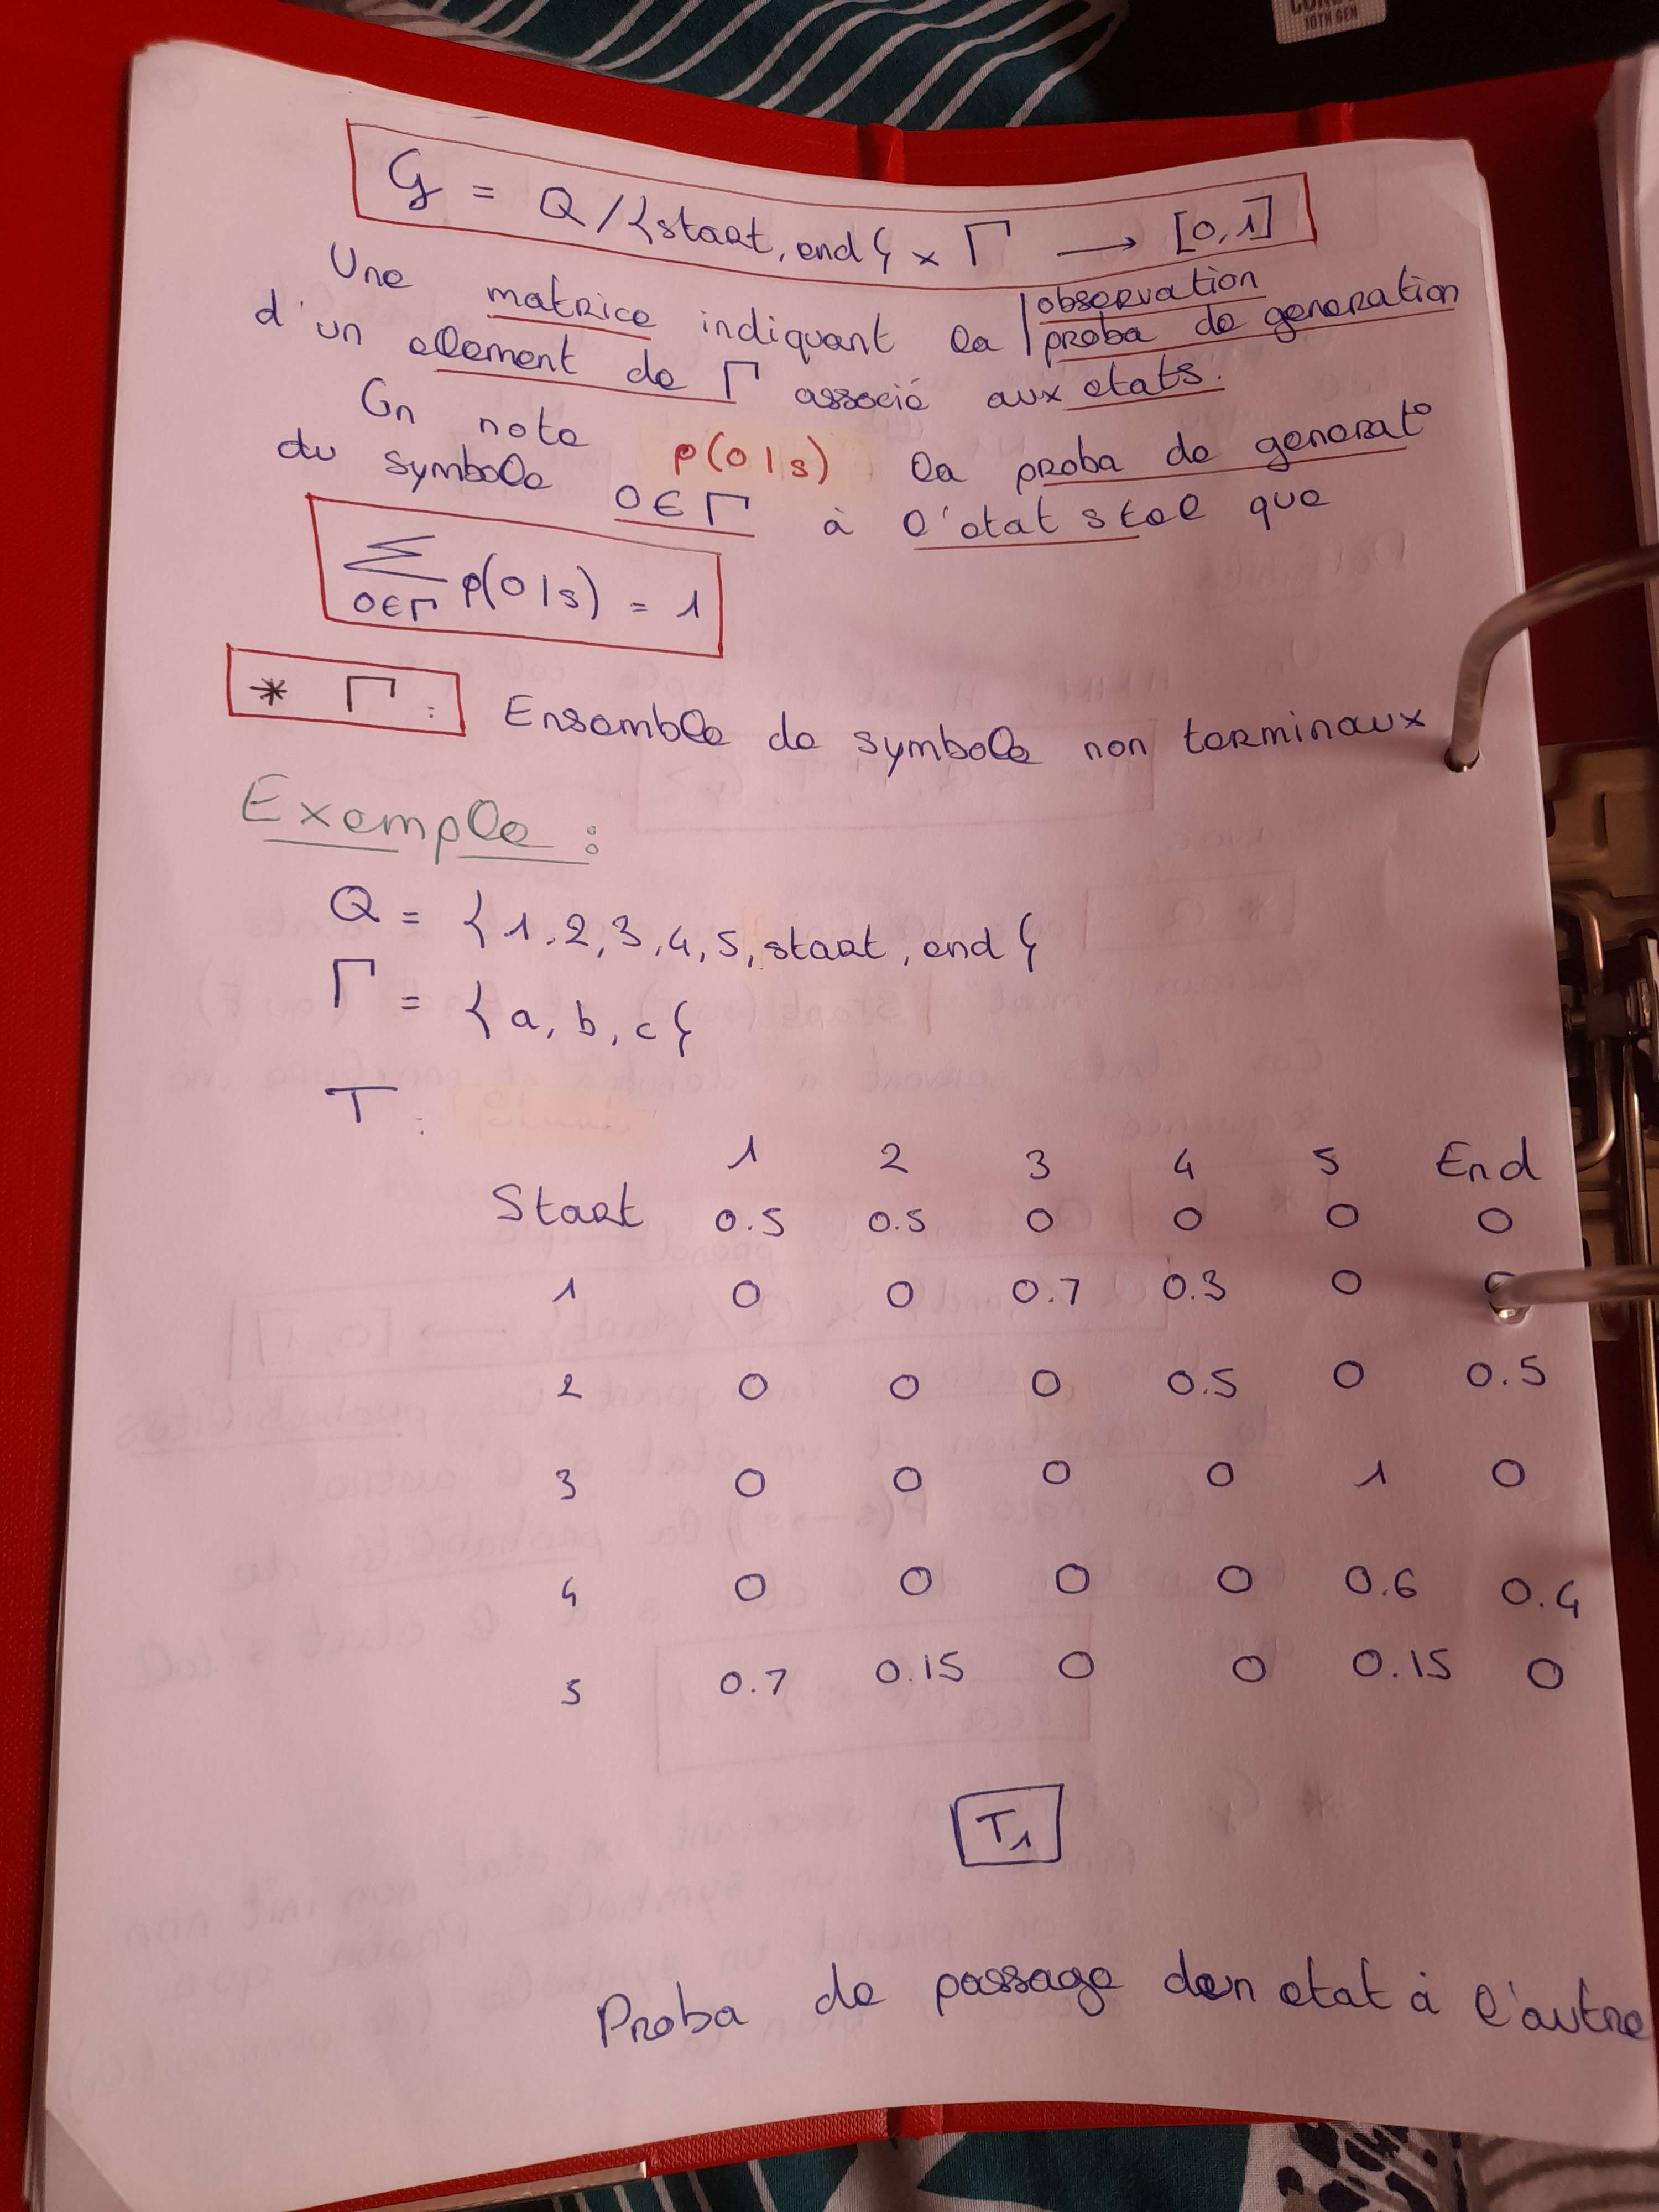 10TH GEN
G = Q/{start, end} × Γ → [0,1]
Une matrice indiquant la | observation
proba de generation
d'un element de Γ associé aux etats.
On note p(o|s) la proba de generat°
du symbole o∈Γ à l'etat s tel que
∑ p(o|s) = 1
o∈Γ
* Γ : Ensemble de symbole non terminaux
Exemple :
Q = {1,2,3,4,5,start,end}
Γ = {a, b, c}
T :
1 2 3 4 5 End
Start 0.5 0.5 0 0 0 0
1 0 0 0.7 0.3 0
2 0 0 0 0.5 0 0.5
3 0 0 0 0 1 0
4 0 0 0 0 0.6 0.4
5 0.7 0.15 0 0 0.15 0
T1
Proba de passage d'un etat à l'autre